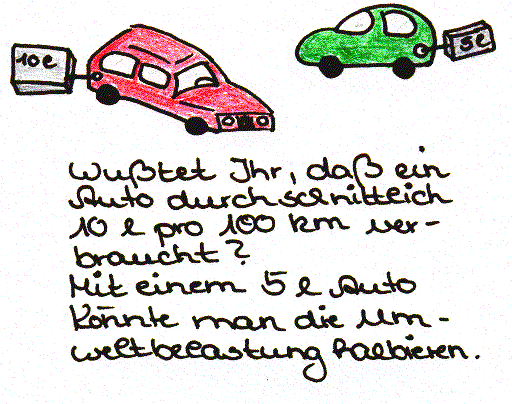 10 l
5 l
Wußtet Ihr, daß ein
Auto durchschnittlich
10 l pro 100 km ver-
braucht?
Mit einem 5 l Auto
könnte man die Um-
weltbelastung halbieren.